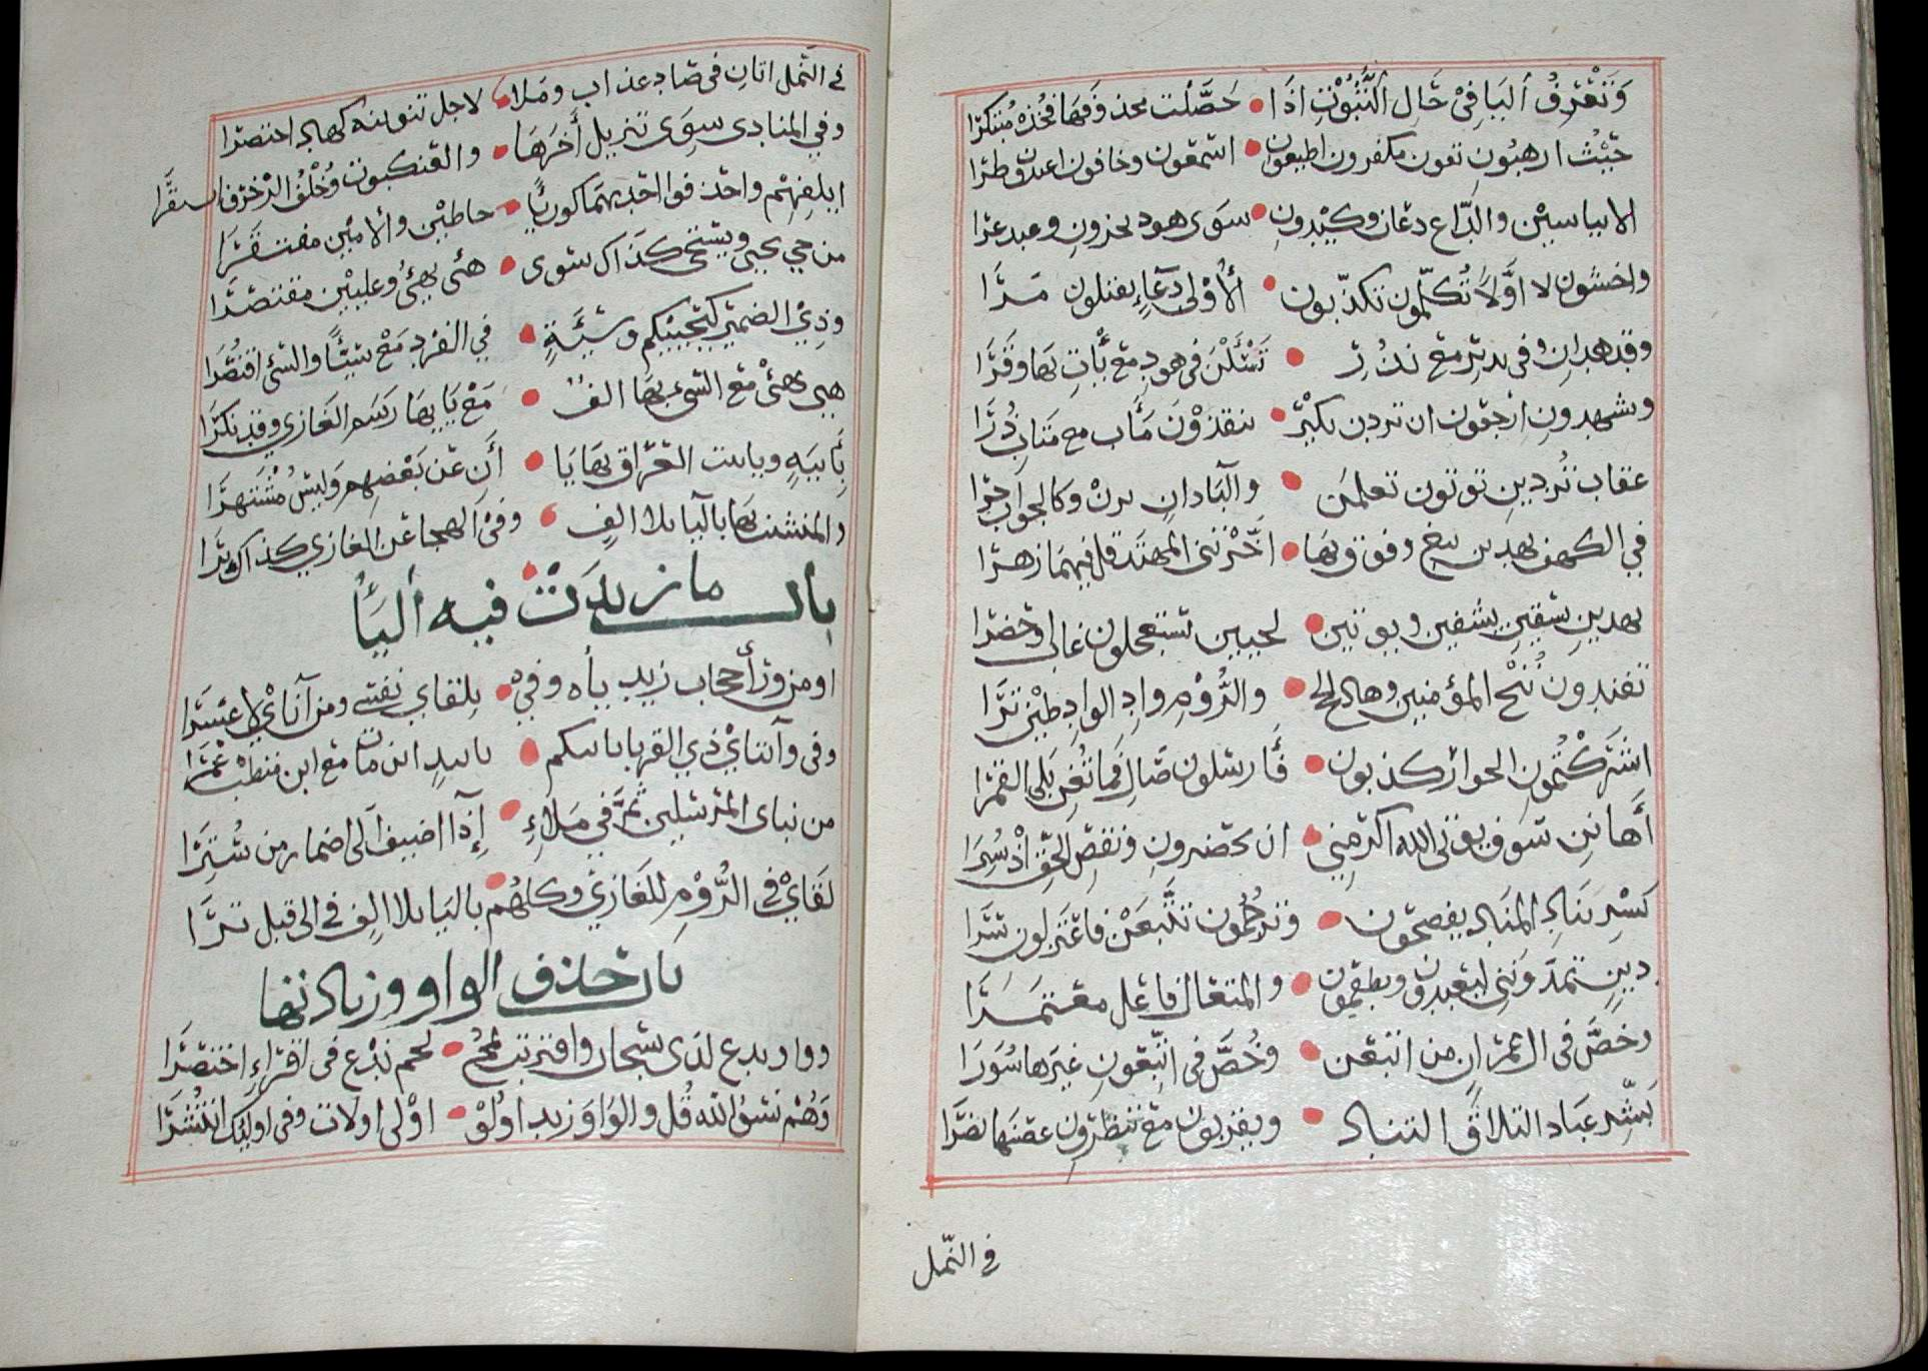 وَتَعْرِفُ الْيَا فِىْ حَالِ الثُّبُوْتِ اذَا • حَصَّلْتَ محذوفهَا فخُذْهُ مُبْتَكَرَا
حَيْثُ ارهبُون تقون تكفرون اطيعون • اسمعون وخافون اعبدون طرَا
الا بياسين والدّاع دعَان وكيْدونِ • سوَى هود تخزونِ وعيد عرَا
واخشون لا اوَّلَا تُكلّمون تكذّبون • الُاوْلى دعَاءِ يقتلون مرَا
وقد هدانِ وفى نذير مع نذُرِ • تَسْئَلْنَ فى هود مع يَأتِ بهَا وقَرَا
وتشهدونِ ارجعون ان يردن نكيْر • ينقذوْنَ مَأب مع متَاب ذُرَا
عقاب تُرْدين توتون تعلمن • والبَاد ان ترنْ وكالجوَاب جرَا
في الكهف يهدين نبغ وفوق بهَا • اخّرتن المهتد قل فيهمَا زهرَا
يهدين يسقين يشفين ويوتين • يحيين تستعجلون غاب اوحضرَا
تفندونَ نُنْجِ المؤمنين وهَاد الحج • والرُّوْمِ وادِ الوادِ طبْن ثرَا
اشركْتُمون الجوار كذبون • فَأرسلون صَال فمَا تُغن يلى القمرَا
أَهانن سَوف يؤتى الله اكرمن • ان يحضرونِ ونقض الحقّ اذْ سُبرَا
يَسْرِ يُنَادِ المنَاد تفضحون • وترجُمون تتَّبعنْ فاعتزلون سرَا
دين تمدّونَنى ليعبدون ويطعمون • والمتعَال فاعْل معتمرَا
وخصَّ فى ال عمرَان من اتبعن • وخُصَّ فى اتّبعونِ غيرَها سُوَرَا
بشّر عبَاد التلاق التناد • وتقربون مع تنظرون عصنهَا نضرَا
في النّمل
في النَّمل اتانِ فى صَاد عذاب ومَا • لاجل تنوينه كهاد اختصرَا
وفي المنادى سوَى تنزيل أخرَهَا • والعنكبوت وخُلْفُ الزخرف انتقرَا
ايلفهم واحذفوا احديهمَا كورئيًا • خاطئين والامّيين مقتفرَا
من حي يحيى ويستحى كذَاك سوى • هئى يهئُ وعليّين مقتصرَا
وذِيْ الضمير كيحييكم وسَيّئَةٍ • في الفرد مَعْ سيئًا والسّئ اقتصرَا
هيئ يهئْ مع السئ بهَا الف • مَعْ يَايهَا رسم الغازي وقد نكرَا
بأييّهٍ وبايت العرَاق بهَا يَا • أن عن بعضهم وليْسَ مشْتهرَا
والمنشئت بهَا باليَا بلا الف • وفىْ الهجا عن الغازي كذاك يرَا
باب ما زيدَتْ فيه اليَاُ
او من وراَْ حجاب زيد ياه وفي • تلقاي نفسي ومن آناي لا عسرَا
وفى وآيتايْ ذي القربا باييكم • باييدٍ ان مات مع ابن مت طب عمرَا
من نباى المرسلين ثمَّ في مَلاءِ • إذآ اضيف الى اضمار من سُترَا
لقَايْ فى الرُّوْمِ للغازيْ وكلهُم • باليَا بلا الف في الى قبل ترَا
باب حذف الواو وزيادتها
وواو يدع لدَى سبحان واقتربت • يمحُ بحم ندْع فى اقرَاءِ اختصرَا
وَهُم نسُوا الله قُل والوَاوَ زيد اولُوْ • اوْلى اولات وفى اولئك انتشرَا